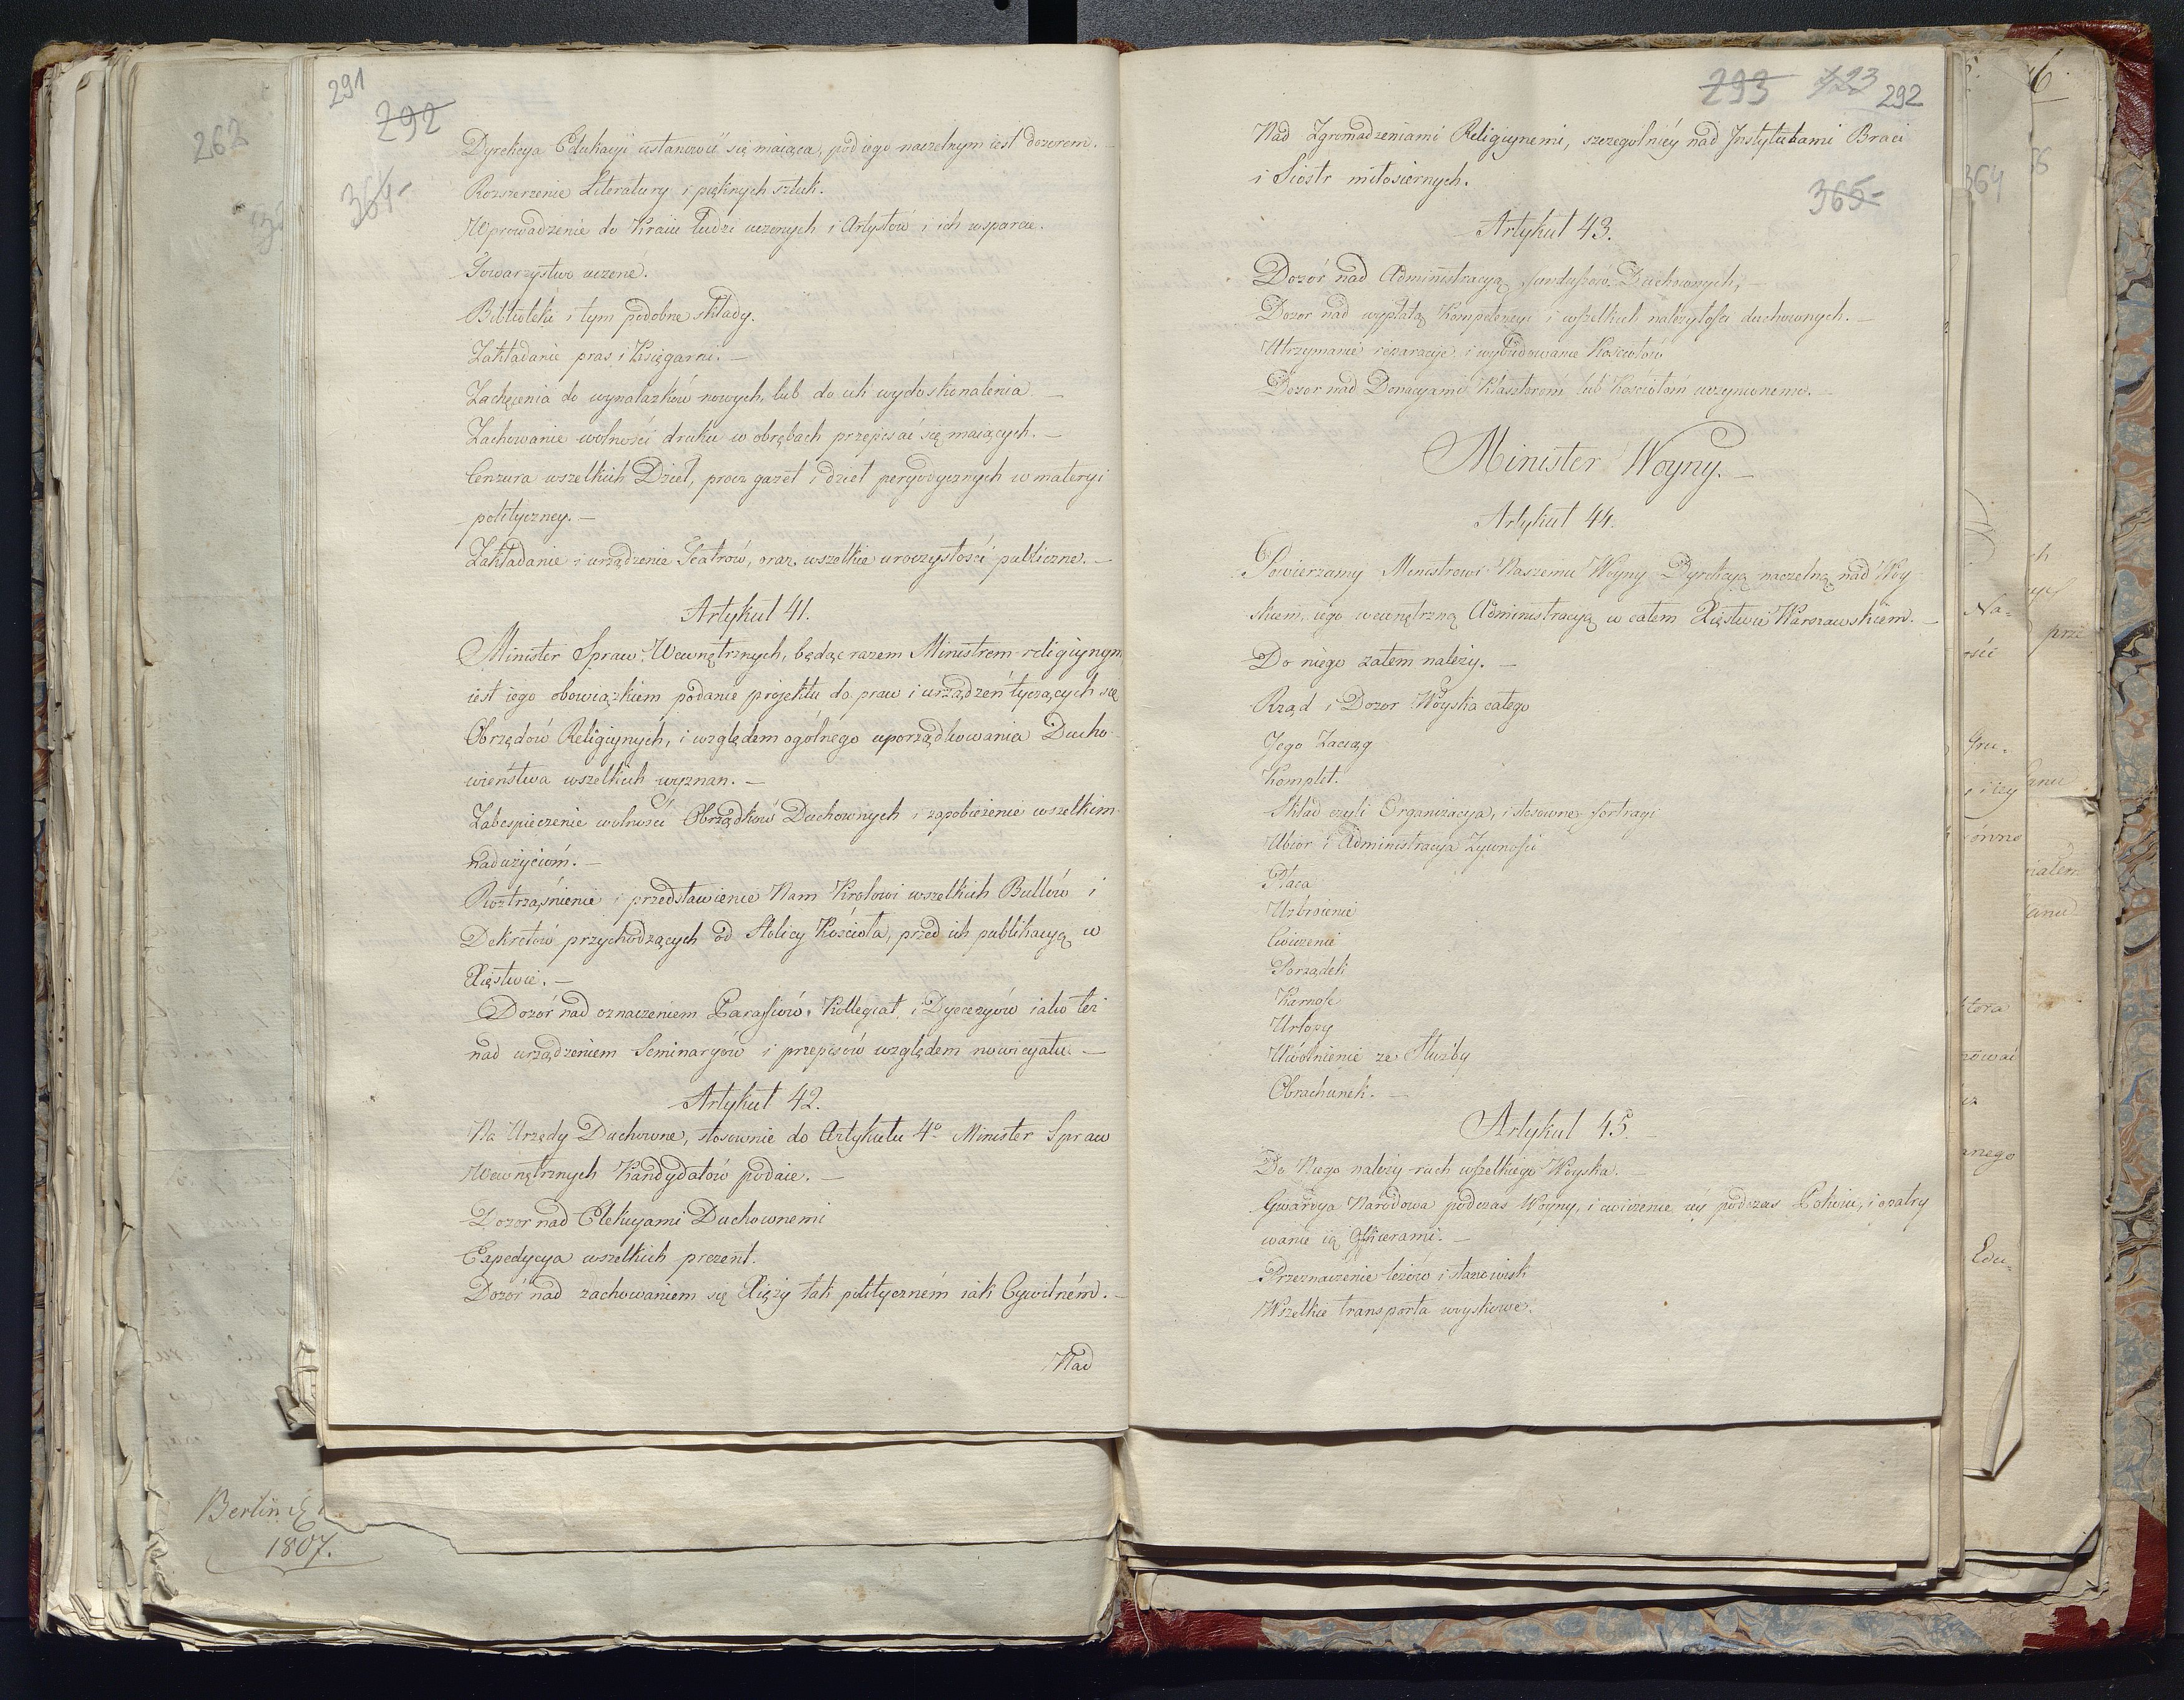 291
292
364
262
Dyrekcya Edukacyi ustanowić się maiąca, pod iego naczelnym iest dozorem.
Rozszerzenie Literatury i pięknych sztuk.
Wprowadzenie do Kraiu ludzi uczonych i Artystów i ich wsparcie.
Towarzystwo uczone.
Biblioteki i tym podobne składy.
Zakładanie pras i Księgarni. —
Zachęcenia do wynalazków nowych, lub do ich wydoskonalenia —
Zachowanie wolności druku w obrębach przepisać się maiących. —
Cenzura wszelkich Dzieł, procz gazet i dzieł peryodycznych w materyi
polityczney. —
Zakładanie i urządzenie Teatrów, oraz wszelkie uroczystości publiczne. —
Artykuł 41.
Minister Spraw Wewnętrznych, będąc razem Ministrem religiynym
iest iego obowiązkiem podanie projektu do praw i urządzeń tyczących się
Obrzędów Religiynych, i względem ogólnego uporządkowania Ducho-
wieństwa wszelkich wyznan. —
Zabespieczenie wolności Obrządków Duchownych i zapobieżenie wszelkim
nadużyciom. —
Roztrząśnienie i przedstawienie Nam Krolowi wszelkich Bullów i
Dekretów przychodzących od Stolicy Kościoła, przed ich publikacyą w
Xięstwie. —
Dozór nad oznaczeniem Parafiiów, Kollegiat, i Dyecezyów iako też
nad urządzeniem Seminaryów i przepisów względem nowicyatu. —
Artykuł 42.
Na Urzędy Duchowne, stosownie do Artykułu 4º Minister Spraw
Wewnętrznych Kandydatów podaie. —
Dozor nad Elekcyami Duchownemi
Expedycya wszelkich prezent.
Dozór nad zachowaniem się Xięży tak polityczném iak Cywilném. —
Nad
Berlin
1807.
293 123 292
365
Nad Zgromadzeniami Religiynemi, szczególniéy nad Instytutami Braci
i Siostr miłosiernych.
Artykuł 43.
Dozór nad Administracyą funduszów Duchownych, —
Dozor nad wypłatą Kompetencyi i wszelkich należytości duchownych. —
Utrzymanie reparacye i wybudowanie Kościołów
Dozor nad Donacyami Klasztorom lub Kościołom uczynionemi. —
Minister Woyny. —
Artykuł 44.
Powierzamy Ministrowi Naszemu Woyny Dyrekcyą naczelną nad Woy-
skiem, iego wewnętrzną Administracyą w całem Xięstwie Warszawskiem. —
Do niego zatem należy. —
Rząd i Dozor Woyska całego
Jego Zaciąg
Komplet.
Skład czyli Organizacya, i stosowne fortragi
Ubior i Administracya Żywności
Płaca
Uzbroienie
Cwiczenie
Porządek
Karność
Urlopy
Uwolnienie ze Służby
Obrachunek. —
Artykuł 45. —
Do Niego należy ruch wszelkiego Woyska. —
Gwardya Narodowa podczas Woyny, i cwiczenie iey podczas Pokoiu, i opatry
wanie ią Officerami. —
Przeznaczenie leżów i stanowisk
Wszelkie transporta woyskowe.
6
364
Na=
przi
Gru=
anego
Edu=